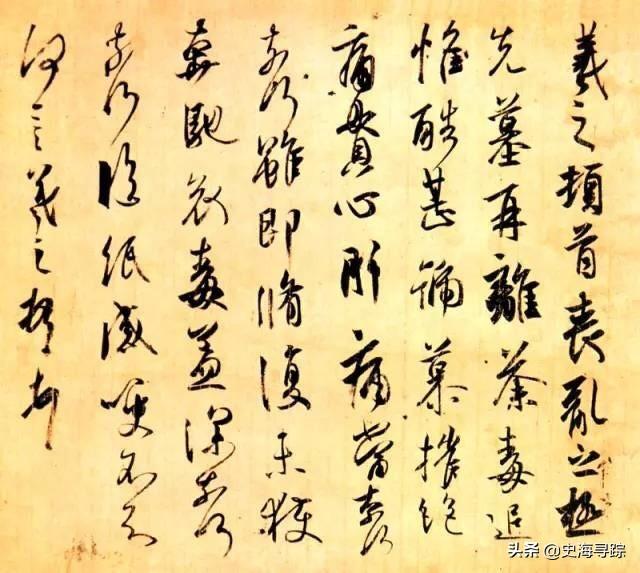 羲之頓首喪亂之極
先墓再離荼毒追
惟酷甚號慕摧絕
痛貫心肝痛當奈何
奈何雖即脩復未獲
奔馳哀毒益深奈何
奈何臨紙感哽不知
何言羲之頓首頓首
头条 @史海寻踪